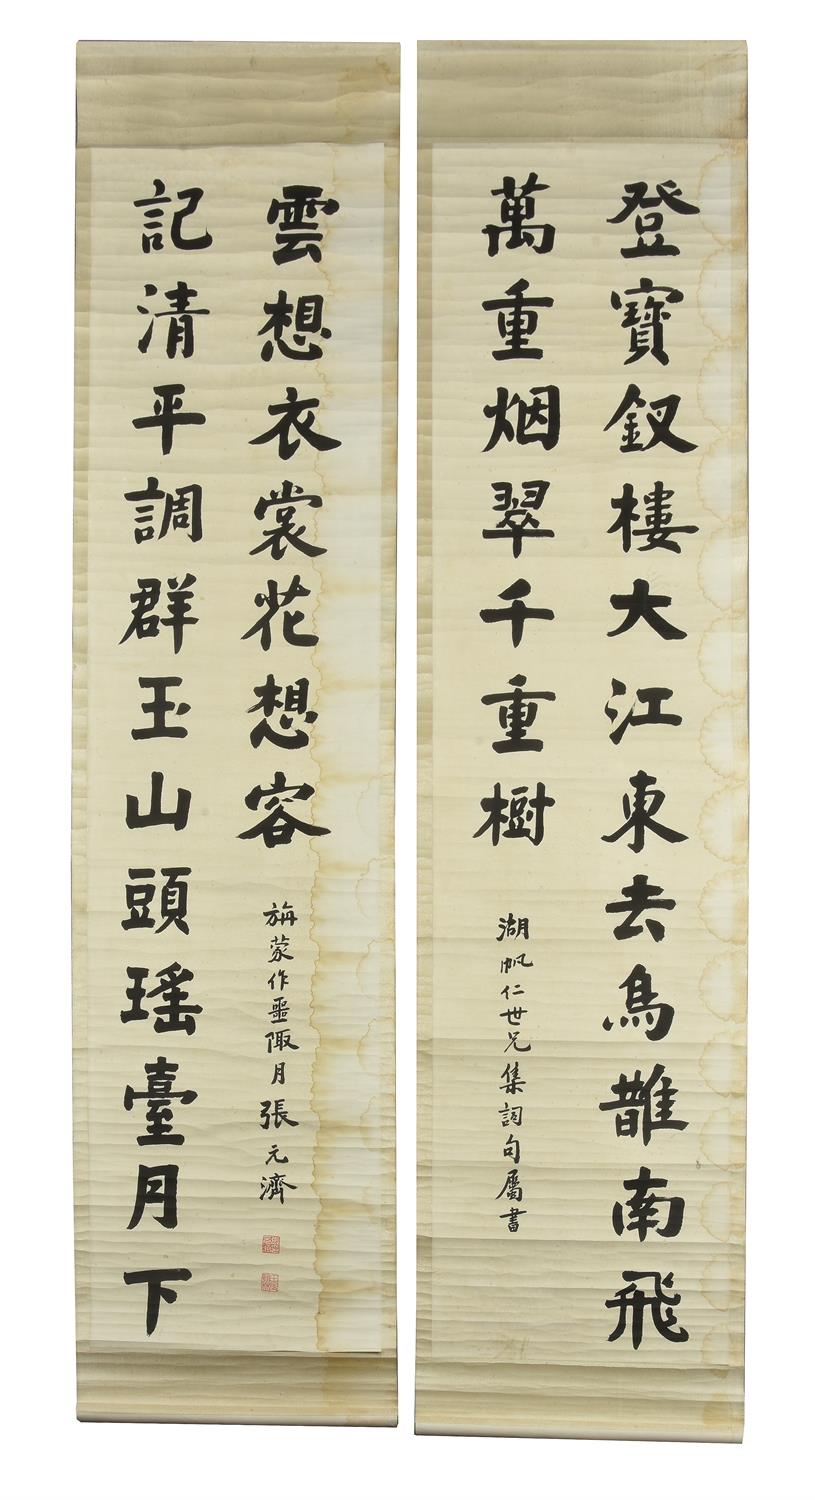 登寶釵樓大江東去烏䧿南飛
萬重烟翠千重樹
湖帆仁世兄集詞句屬書
記清平調群玉山頭瑤臺月下
雲想衣裳花想容
旃蒙作噩陬月張元濟